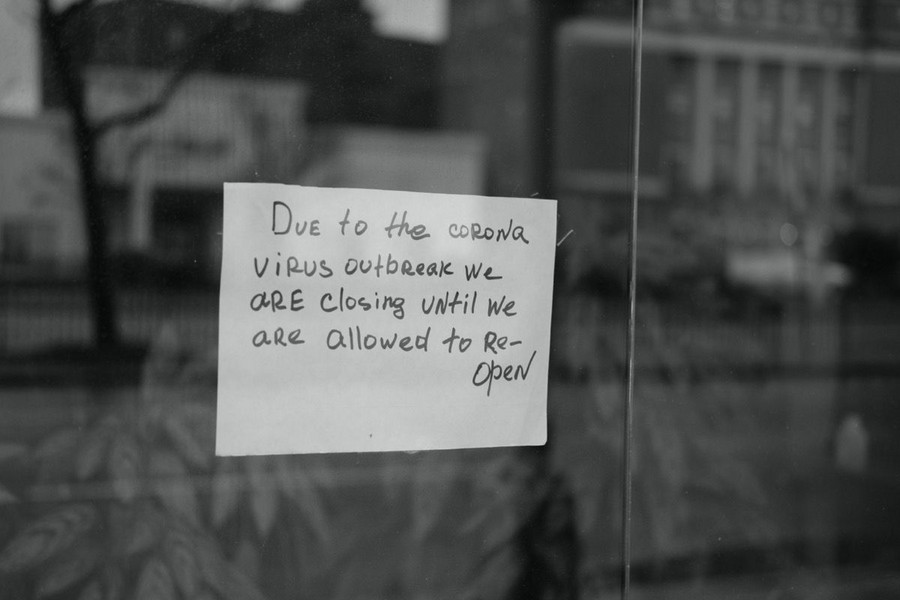 Due to the corona
virus outbreak we
are closing until we
are allowed to re-
open